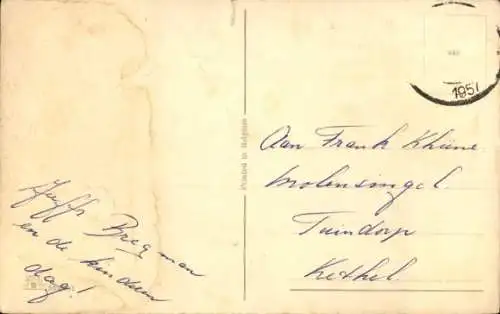 Juffr Bregman
en de kinderen
dag!
Printed in Belgium
1957
Aan Frank Khüne
molensingel
Tuindorp
Kethel